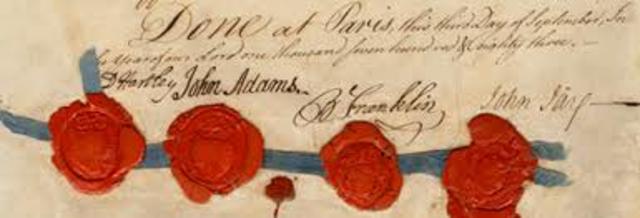 Done at Paris, this third Day of September, In
the Year of our Lord one thousand seven hundred & eighty three. —
D Hartley John Adams. B Franklin John Jay